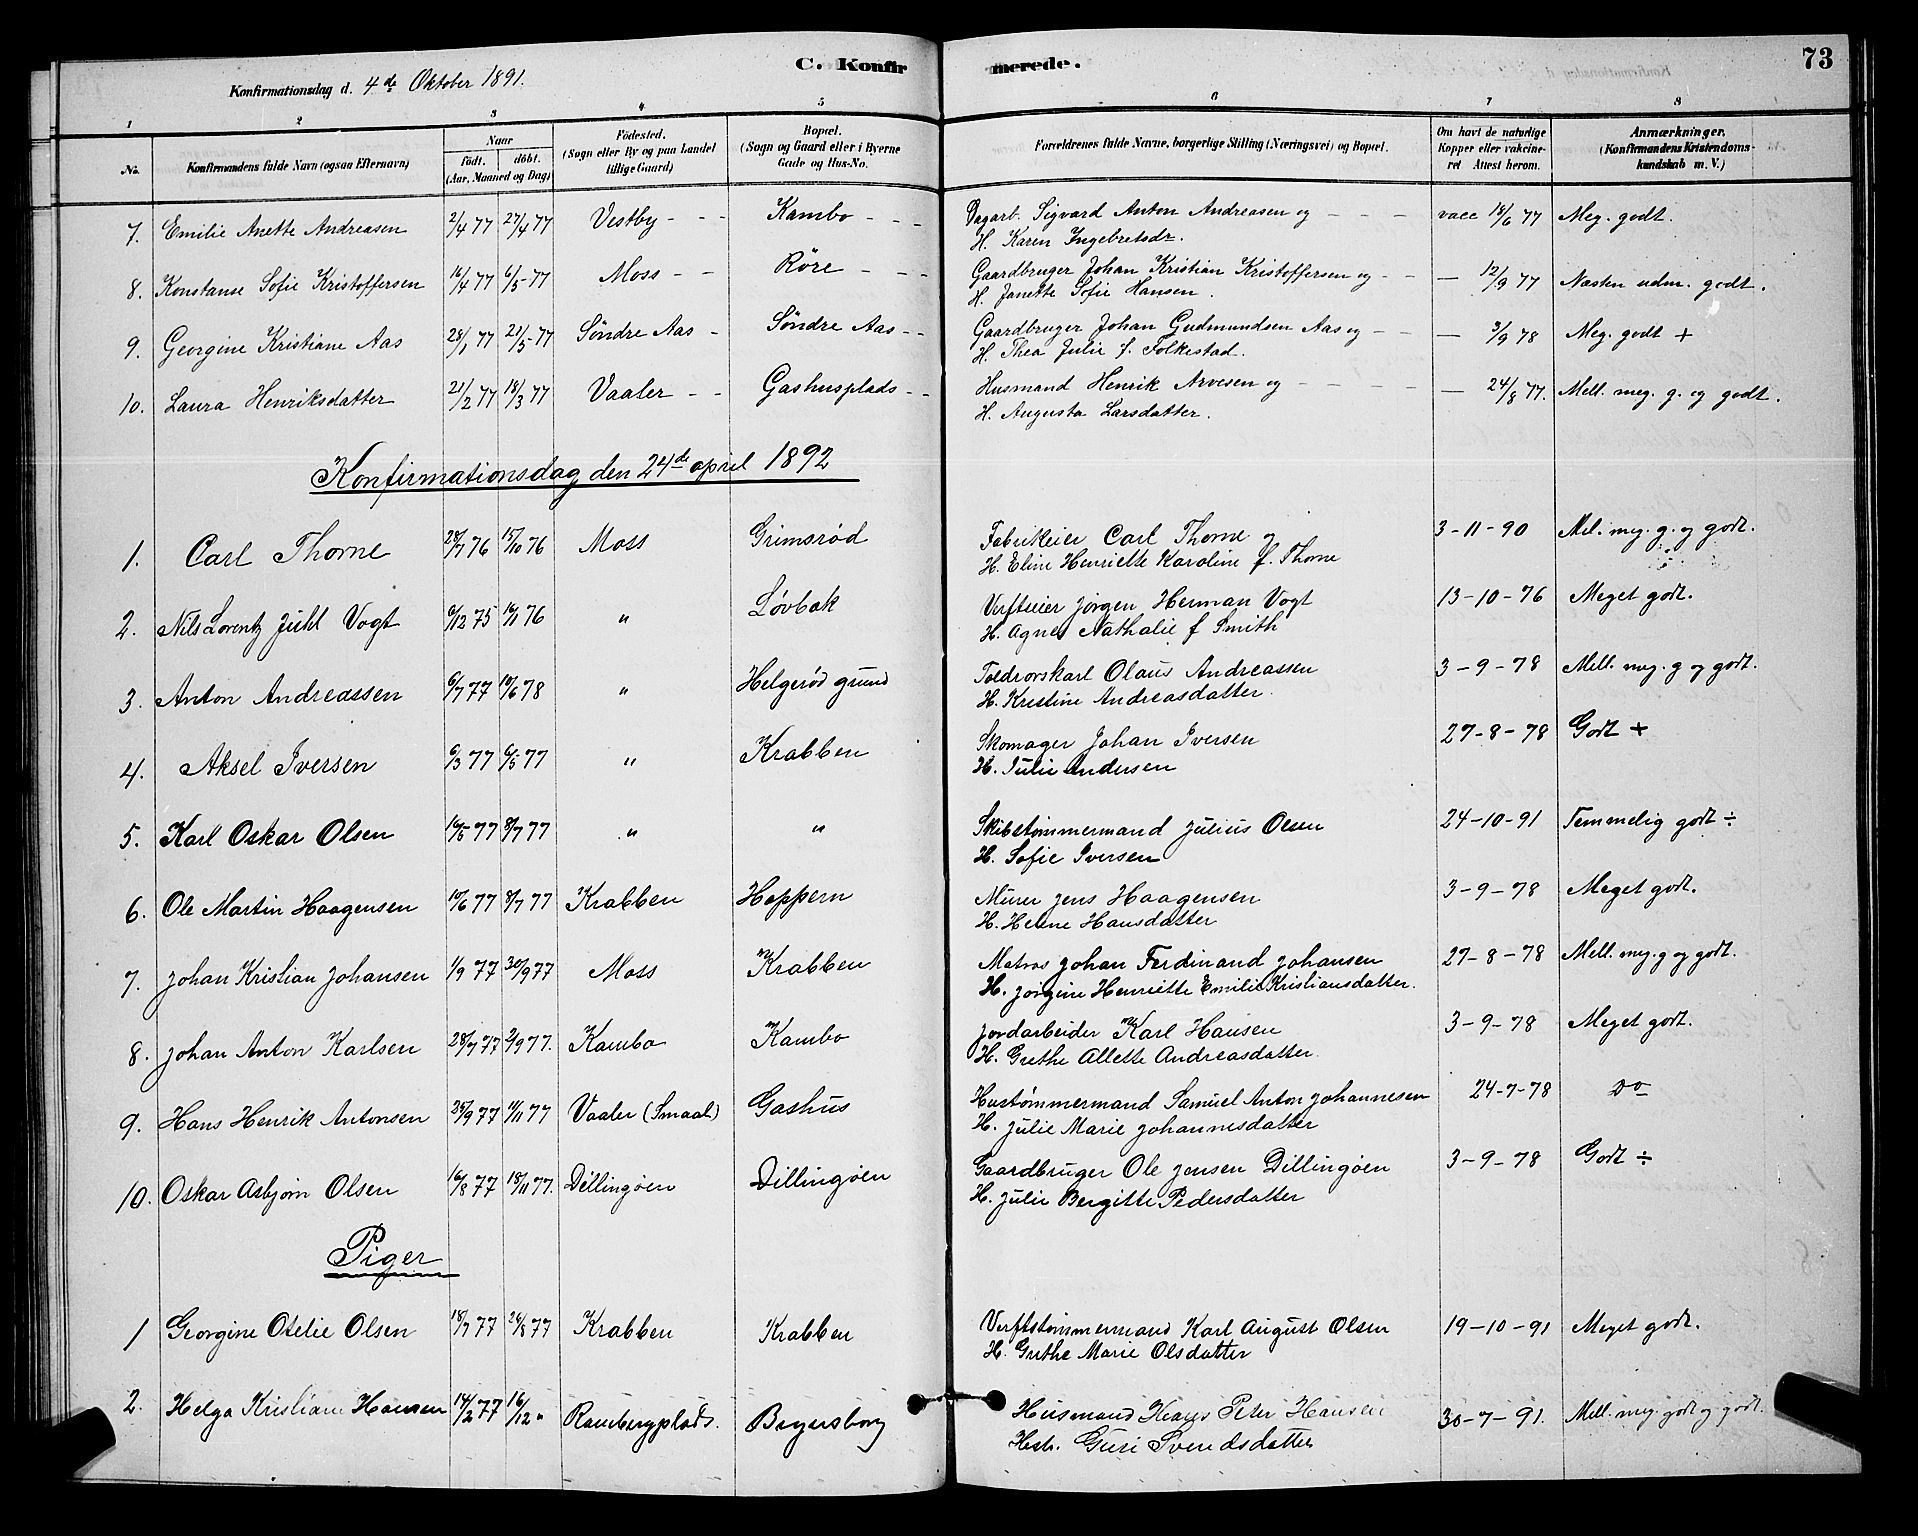 C. Konfirmerede. 73
Konfirmationsdag d. 4de Oktober 1891.
1 2 3 4 5 6 7 8
No. Konfirmandens fulde Navn (ogsaa Efternavn) Naar födt. döbt. (Aar, Maaned og Dag) Födested. (Sogn eller By og paa Landet tillige Gaard) Bopæl. (Sogn og Gaard eller i Byerne Gade og Hus-No. Forældrenes fulde Navne, borgerlige Stilling (Næringsvei) og Bopæl. Om havt de naturlige Kopper eller vakcineret Attest herom. Anmærkninger. (Konfirmandens Kristendomskundskab m. V.)
7. Emilie Anette Andreasen 2/4 77 27/4 77 Vestby - - - Kambo - - - Dagarb. Sigvard Anton Andreasen og - - - - vacc 18/6 77 Meg. godt.
H. Karen Ingebretsdr.
8. Konstanse Sofie Kristoffersen 16/4 77 6/5-77 Moss - - Röre - - - Gaardbruger Johan Kristian Kristoffersen og - - — 12/9 77 Næsten udm. godt.
H. Janette Sofie Hansen.
9. Georgine Kristiane Aas 28/1 77 21/5-77 Söndre Aas - Söndre Aas - - Gaardbruger Johan Gudmundsen Aas og - - — 3/9 78 Meg. godt +
H. Thea Julie f. Folkestad.
10. Laura Henriksdatter 21/2 77 18/3 77 Vaaler - - Gashusplads - - Husmand Henrik Arvesen og - - - - — 24/8 77. Mell. meg. g. og godt.
H. Augusta Larsdatter.
Konfirmationsdag den 24de april 1892
1. Carl Thorne 28/7 76 15/10 76 Moss Grimsrød Fabrikeier Carl Thorne og 3-11-90 Mel. meg. g. og godt.
H. Eline Henriette Karoline f. Thorne
2. Nils Lorentz Juhl Vogt 6/12 75 16/1 76 " Løvbak Verfteier Jørgen Herman Vogt 13-10-76 Meget godt.
H. Agnes Nathalie f Smith
3. Anton Andreassen 6/7 77 10/6 78 " Helgerød grund Toldrorskarl Olaus Andreassen 3-9-78 Mell. meg. g og godt.
H. Kristine Andreasdatter.
4. Aksel Iversen 6/3 77 6/5 77 " Krabben Skomager Johan Iversen 27-8-78 Godt +
H. Julie Andersen
5. Karl Oskar Olsen 16/5 77 8/7 77 " " Skibstømmermand Julius Olsen 24-10-91 Temmelig godt ÷
H. Sofie Iversen
6. Ole Martin Haagensen 10/6 77 8/7 77 Krabben Hoppern Murer Jens Haagensen 3-9-78 Meget godt.
H. Helene Hansdatter
7. Johan Kristian Johansen 1/9 77 30/9 77 Moss Krabben Matros Johan Ferdinand Johansen 27-8-78 Mell. meg. g og godt.
H. Jørgine Henriette Emilie Kristiansdatter.
8. Johan Anton Karlsen 28/7 77 2/9 77. Kambo Kambo Jordarbeider Karl Hansen 3-9-78 Meget godt.
H. Grethe Allette Andreasdatter.
9. Hans Henrik Antonsen 25/9 77 11/11 77 Vaaler (Smaal) Gashus Hustømmermand Samuel Anton Johannesen 24-7-78 Do
H. Julie Marie Johannesdatter
10. Oskar Asbjørn Olsen 16/8 77 18/11 77. Dillingøen Dillingøen Gaardbruger Ole Jensen Dillingøen 3-9-78 Godt ÷
H. Julie Bergitte Pedersdatter
Piger
1 Georgine Otelie Olsen 18/7 77 26/8 77 Krabben Krabben Verftstømmermand Karl August Olsen 19-10-91 Meget godt.
H. Grethe Marie Olsdatter
2. Helga Kristiane Hansen 14/2 77 16/12 " Rambergplads. Beyersborg Husmand Peter Hansen 30-7-91. Mell. meg. godt og godt.
Hstr. Guri Svendsdatter